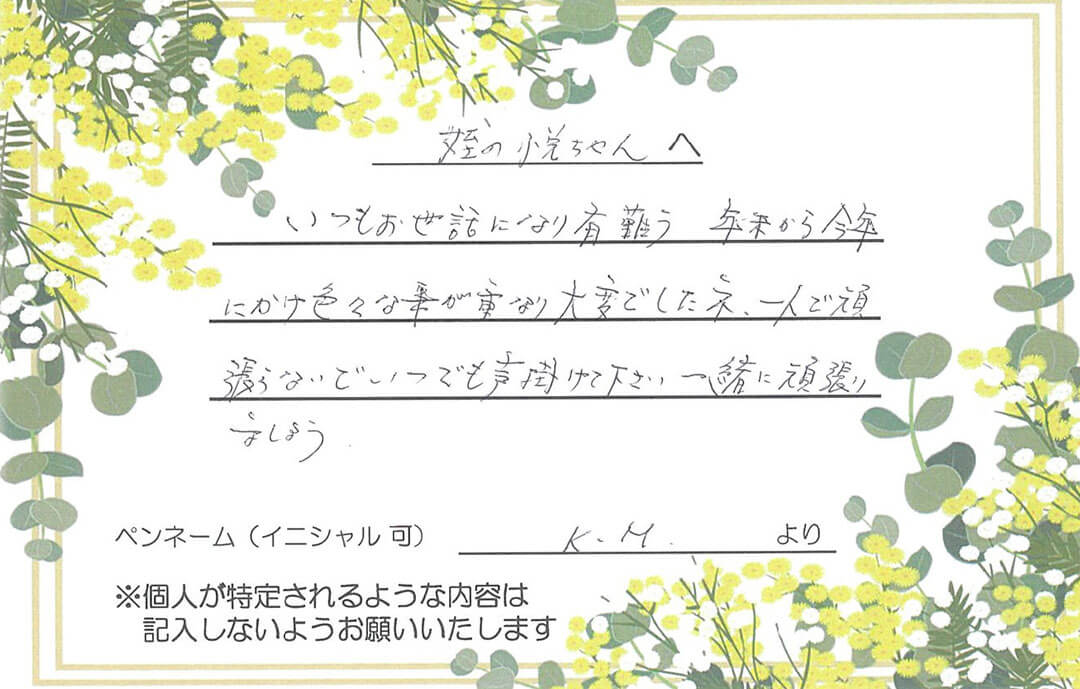 姪の悦ちゃん へ
いつもお世話になり有難う 年末から今年
にかけ色々な事が重なり大変でしたネ、一人で頑
張らないでいつでも声掛けて下さい 一緒に頑張り
ましょう.
ペンネーム（イニシャル 可） K.M. より
※個人が特定されるような内容は
記入しないようお願いいたします